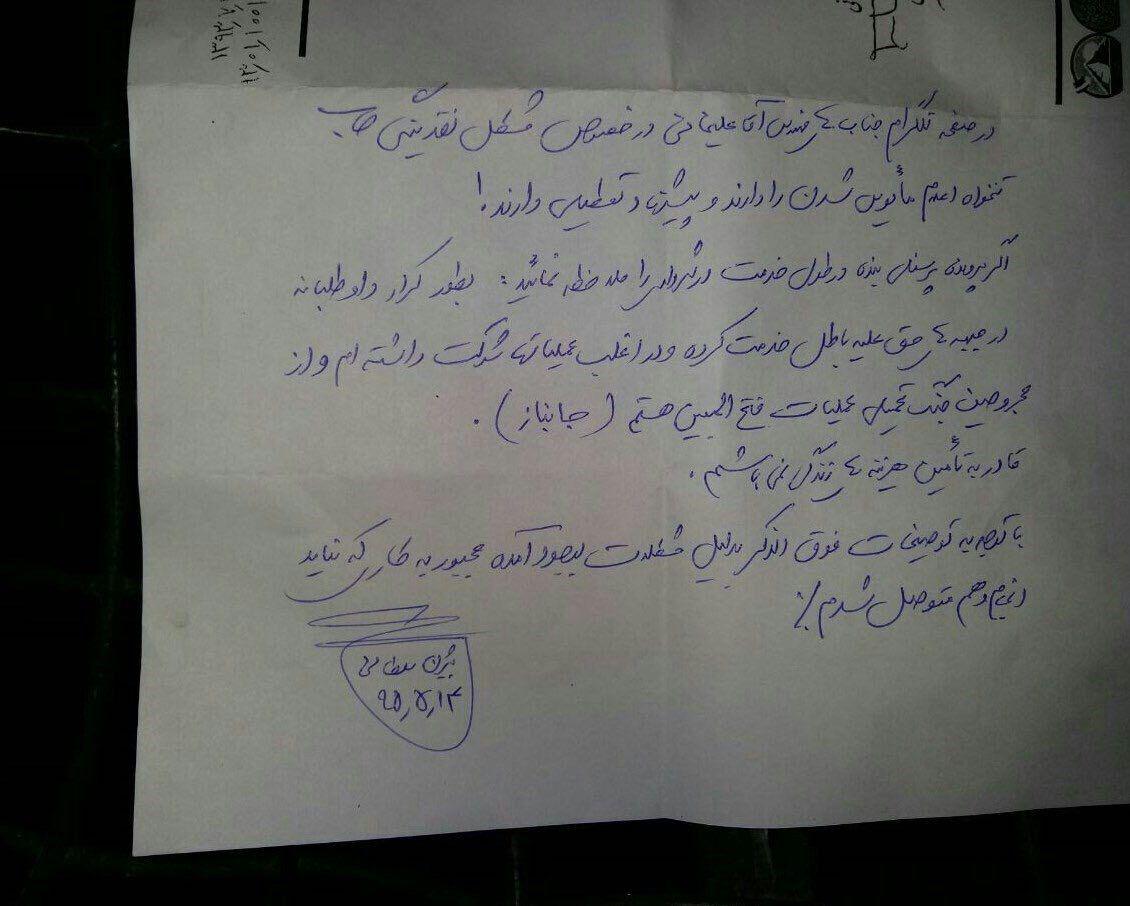 در صفحه تلگرام جناب های مهندس آقا علیخانی در خصوص مشکل نقدینگی حساب
تنخواه اعلام مأیوس شدن را دارند و پیشنهاد تعطیلی دارند!
اگر پرونده پرسنلی بنده در طول خدمت در را ملاحظه نمائید: بطور کرار داوطلبانه
در جبهه های حق علیه باطل خدمت کرده و در اغلب عملیاتها شرکت داشته ام و از
مجروحین جنگ تحمیلی عملیات فتح المبین هستم (جانباز).
قادر به تأمین هزینه های زندگی نمی باشم.
با توجه به توضیحات فوق الذکر بدلیل مشکلات بوجود آمده مجبور به کاری که نباید
انجام دهم متوصل شدم
بیژن
۹۵٫۵٫۱۴